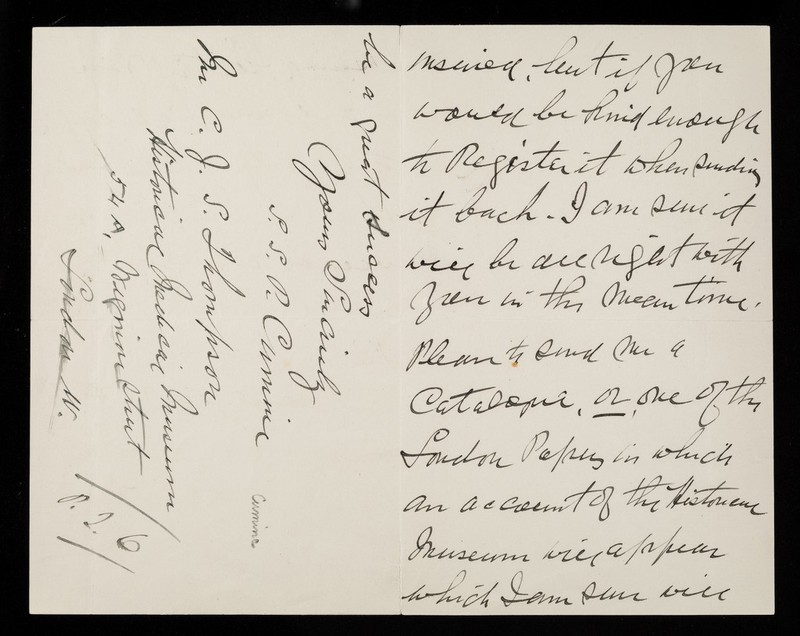 insured, but if you
would be kind enough
to Register it when sending
it back. I am sure it
will be all right with
you in the meantime.
Please to send me a
Catalogue, or, one of the
London Papers in which
an account of the Historical
Museum will appear
which I am sure will
be a great success
Yours Sincerely
S. S. P. Cumine
Cumine
Mr C. J. S. Thompson
Historical Medical Museum
54 A, Wigmore Street
London W.